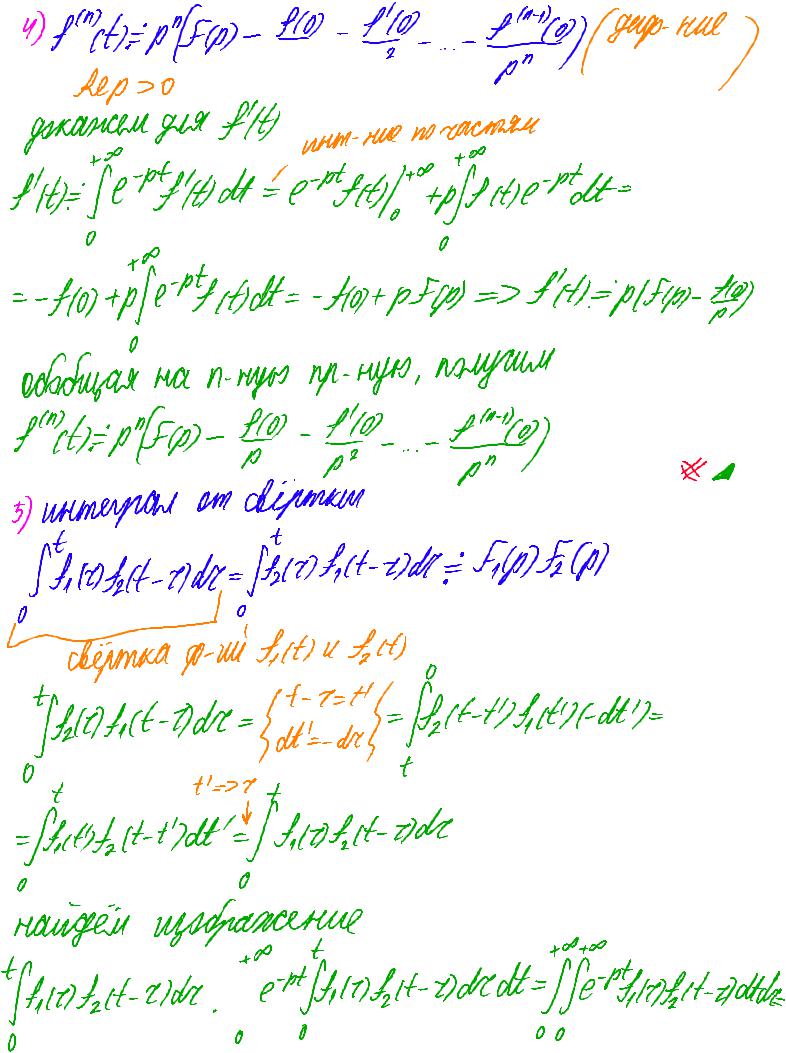 4) f⁽ⁿ⁾(t) ≓ pⁿ(F(p) - f(0) - f'(0)/2 - ... - f⁽ⁿ⁻¹⁾(0)/pⁿ) (диф-ние)
Re p > 0
докажем для f'(t)
инт-ние по частям
f'(t) ≓ ∫₀^{+∞} e^{-pt} f'(t) dt = e^{-pt} f(t)|₀^{+∞} + p∫₀^{+∞} f(t) e^{-pt} dt =
= -f(0) + p∫₀^{+∞} e^{-pt} f(t) dt = -f(0) + pF(p) => f'(t) ≓ p(F(p) - f(0)/p)
обобщая на n-ную пр-ную, получим
f⁽ⁿ⁾(t) ≓ pⁿ(F(p) - f(0)/p - f'(0)/p² - ... - f⁽ⁿ⁻¹⁾(0)/pⁿ)
5) интеграл от свёртки
∫₀^t f₁(τ) f₂(t-τ) dτ = ∫₀^t f₂(τ) f₁(t-τ) dτ ≓ F₁(p) F₂(p)
свёртка ф-ий f₁(t) и f₂(t)
∫₀^t f₂(τ) f₁(t-τ) dτ = {t-τ=t' dt'=-dτ} = ∫_t^0 f₂(t-t') f₁(t') (-dt') =
t' => τ
= ∫₀^t f₁(t') f₂(t-t') dt' = ∫₀^t f₁(τ) f₂(t-τ) dτ
найдём изображение
∫₀^t f₁(τ) f₂(t-τ) dτ . ₀^{+∞} e^{-pt} ∫₀^t f₁(τ) f₂(t-τ) dτ dt = ∫₀^{+∞} ∫₀^{+∞} e^{-pt} f₁(τ) f₂(t-τ) dt dτ =